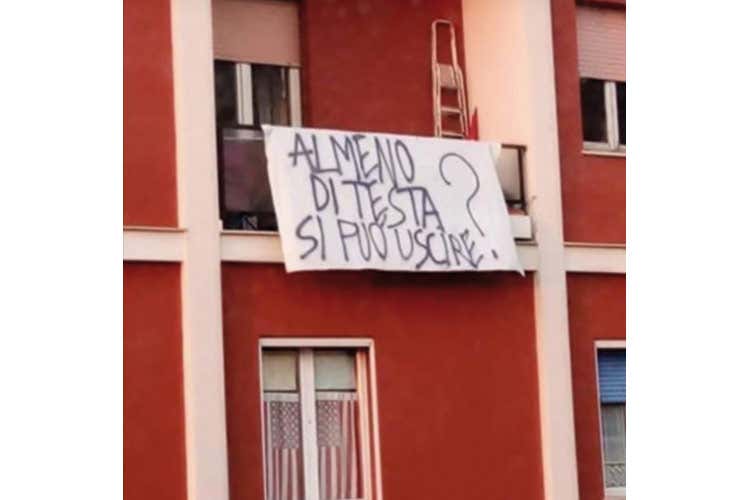 ALMENO
DI TESTA
SI PUÒ USCIRE?